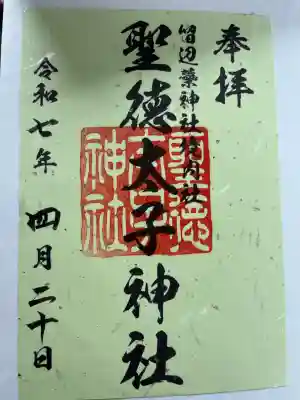 奉拝
留辺蘂神社境内社
聖徳太子神社
聖徳
太子
神社
令和七年 四月二十日